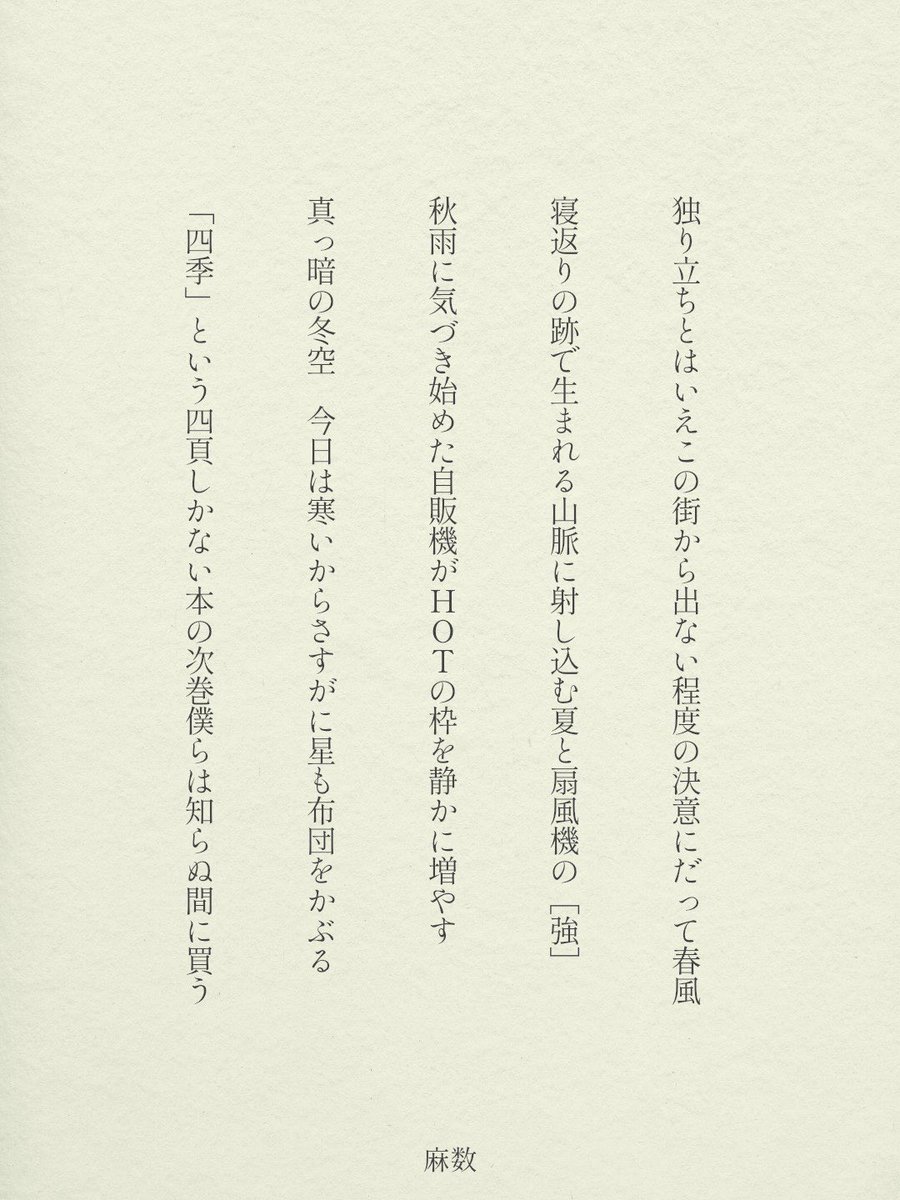 独り立ちとはいえこの街から出ない程度の決意にだって春風
寝返りの跡で生まれる山脈に射し込む夏と扇風機の［強］
秋雨に気づき始めた自販機がＨＯＴの枠を静かに増やす
真っ暗の冬空　今日は寒いからさすがに星も布団をかぶる
「四季」という四頁しかない本の次巻僕らは知らぬ間に買う
麻数